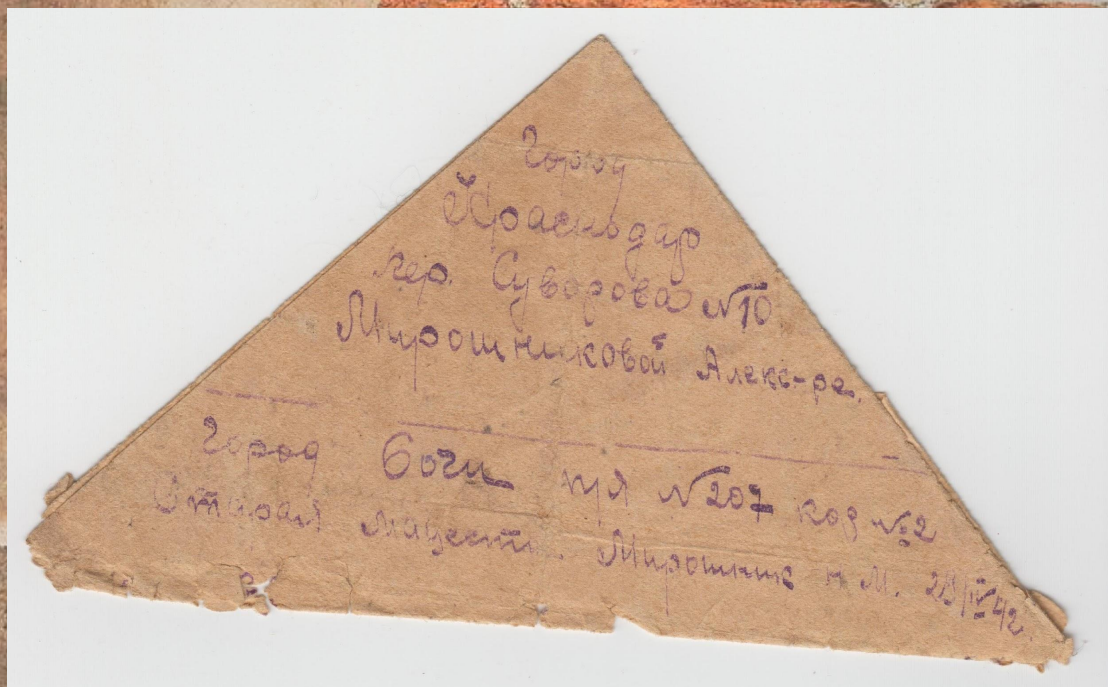 Город
Краснодар
пер. Суворова №10
Мирошниковой Алекс-ре.
Город Сочи п/я №207 код №2
Старая Мацеста. М. IV 42